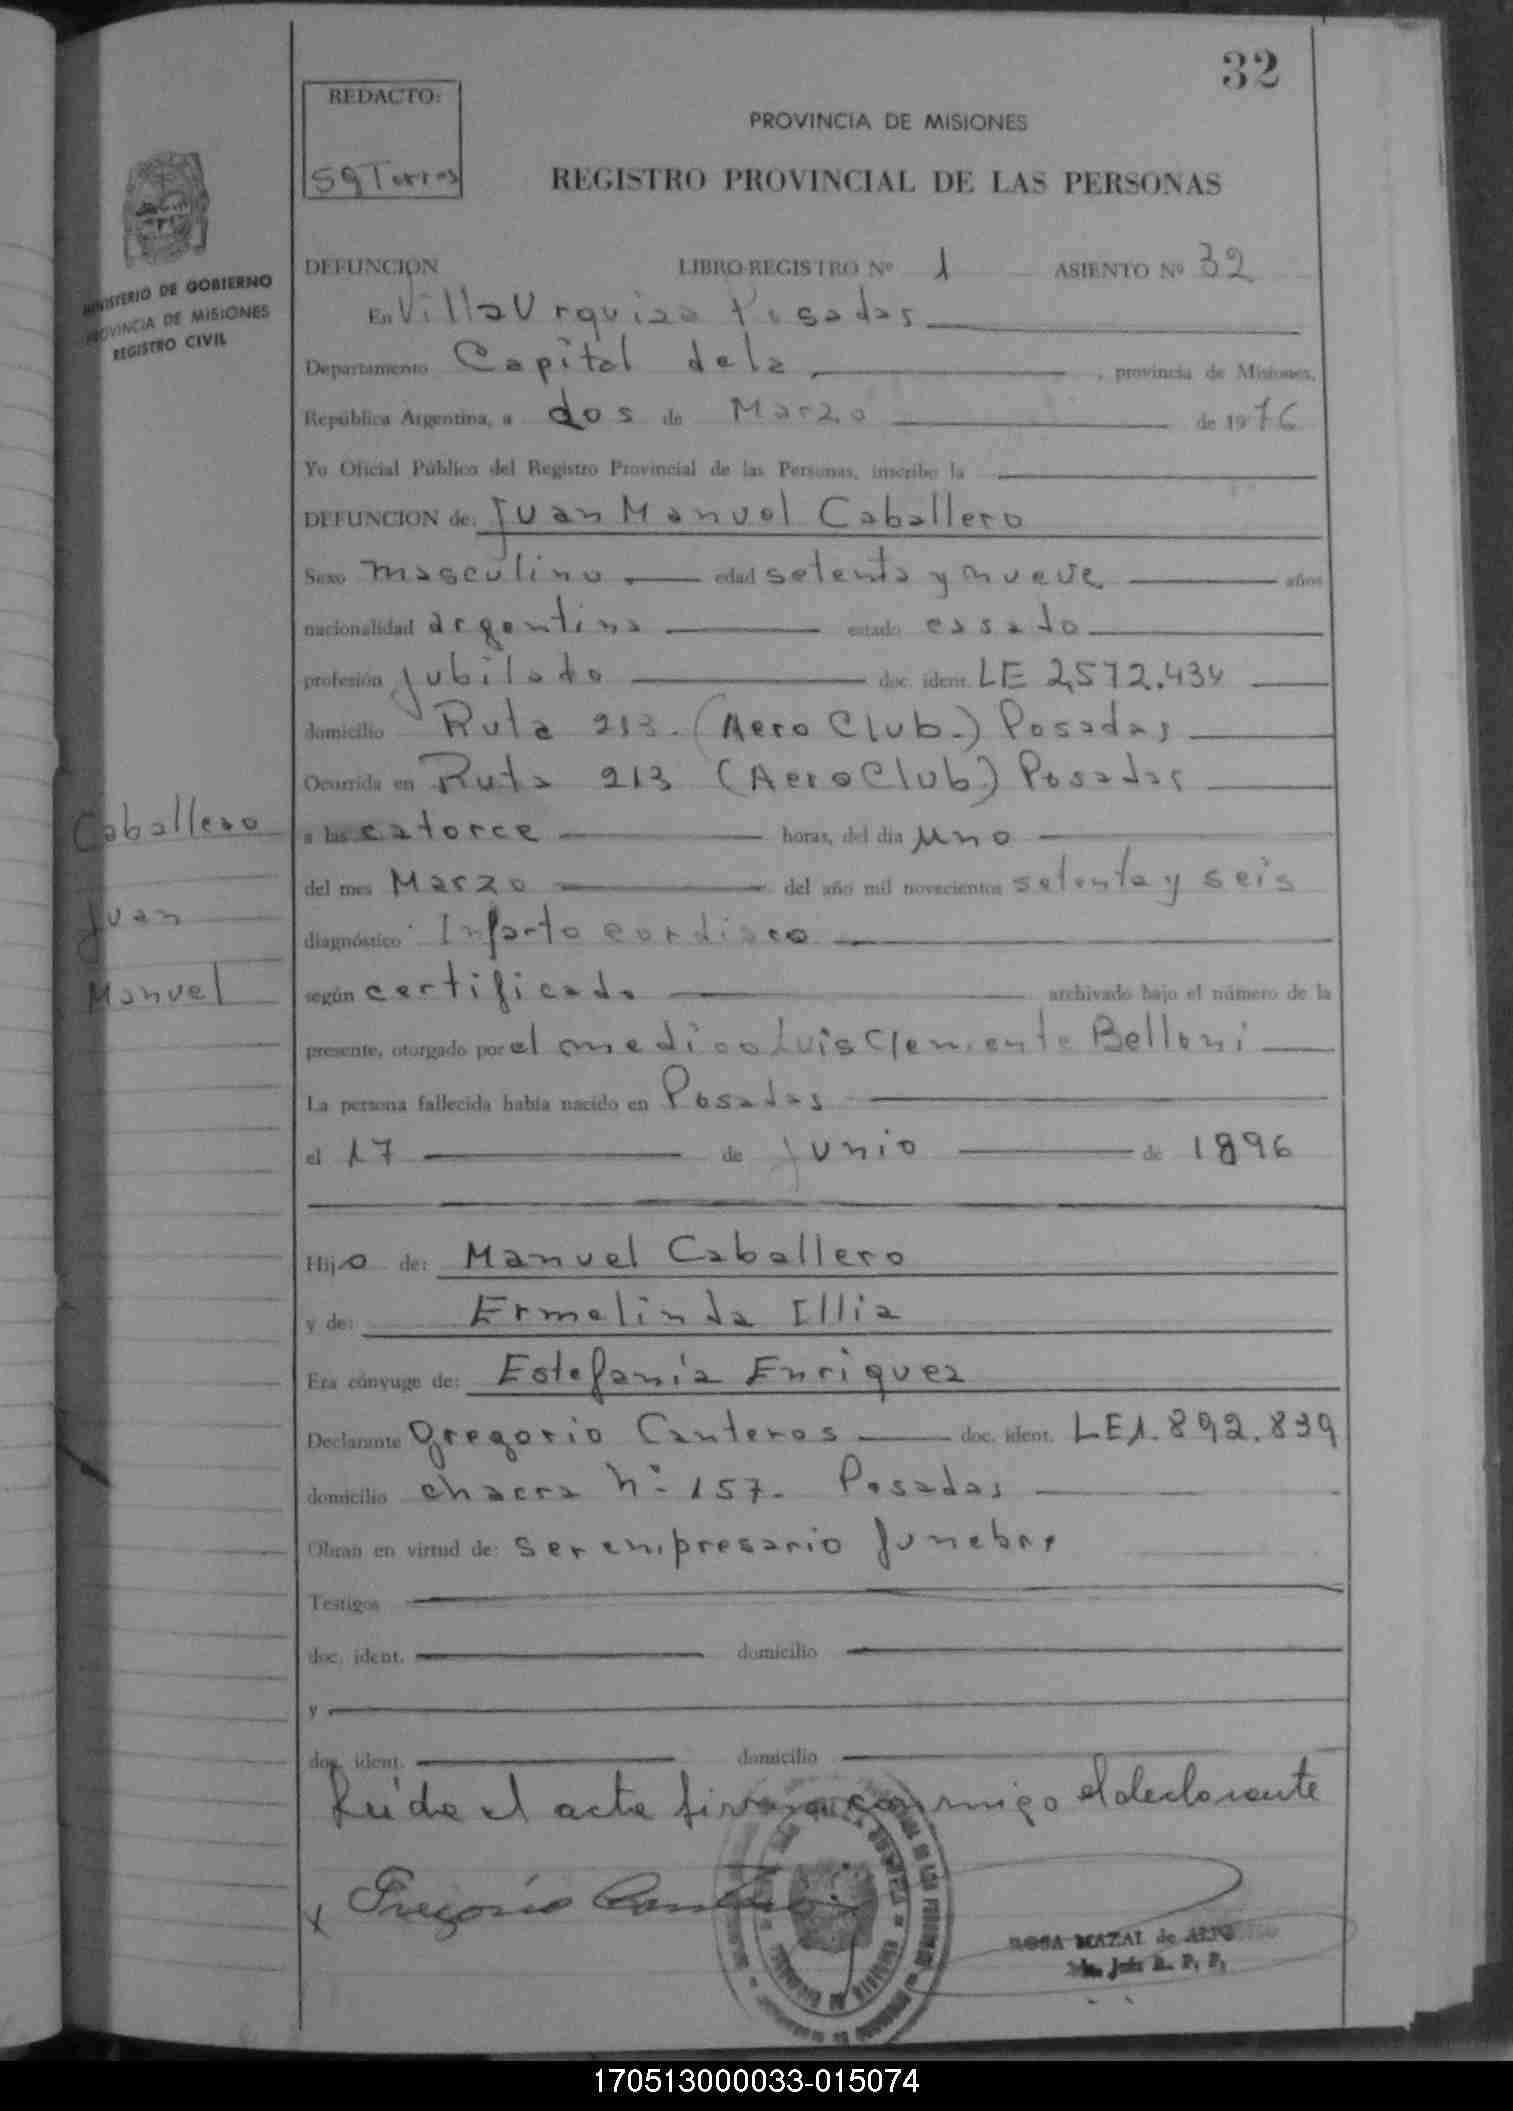 32
REDACTO:
SGTorres
PROVINCIA DE MISIONES
REGISTRO PROVINCIAL DE LAS PERSONAS
MINISTERIO DE GOBIERNO
PROVINCIA DE MISIONES
REGISTRO CIVIL
DEFUNCION LIBRO-REGISTRO Nº 1 ASIENTO Nº 32
En Villa Urquiza Posadas
Departamento Capital dela , provincia de Misiones,
República Argentina, a dos de Marzo de 1976
Yo Oficial Público del Registro Provincial de las Personas, inscribo la
DEFUNCION de: Juan Manuel Caballero
Sexo masculino edad setenta y nueve años
nacionalidad argentina estado casado
profesión jubilado doc. ident. LE 2,572.434
domicilio Ruta 213. (Aero Club.) Posadas
Ocurrida en Ruta 213 (Aero Club.) Posadas
a las catorce horas, del día uno
del mes Marzo del año mil novecientos setenta y seis
diagnóstico Infarto cardiaco
según certificado archivado bajo el número de la
presente, otorgado por el medico Luis Clemente Belloni
La persona fallecida había nacido en Posadas
el 17 de junio de 1896
Caballero
Juan
Manuel
Hijo de: Manuel Caballero
y de: Ermelinda Illia
Era cónyuge de: Estefanía Enriquez
Declarante Gregorio Canteros doc. ident. LE 1.892.839
domicilio chacra Nº 157. Posadas
Obran en virtud de: ser empresario funebre
Testigos
doc. ident. domicilio
y
doc. ident. domicilio
Leída el acta firma conmigo el declarante
x Gregorio Canteros
ROSA MAZAL de
R. P. P.
170513000033-015074